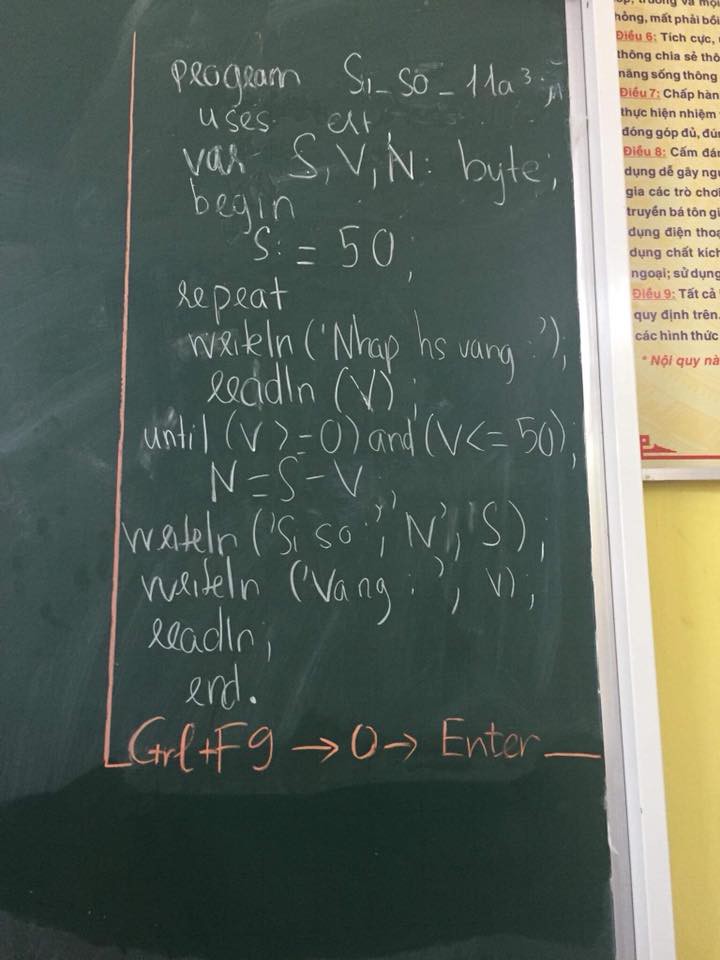 program Si_so_11a3;
uses crt,
var S, V, N: byte;
begin
S:= 50;
repeat
writeln ('Nhap hs vang:');
readln (V);
until (V >=0) and (V<= 50);
N=S-V
writeln ('Si so:', N',' S);
writeln ('Vang:', V);
readln;
end.
Ctrl+F9 → 0 → Enter
Điều 6: Tích cực,
thông chia sẻ thô
năng sống thông
Điều 7: Chấp hàn
thực hiện nhiệm
đóng góp đủ, đún
Điều 8: Cấm đán
dụng dễ gây ngu
gia các trò chơi
truyền bá tôn gi
dụng điện thoạ
dụng chất kích
ngoại; sử dụng
Điều 9: Tất cả
quy định trên.
các hình thức
* Nội quy nà